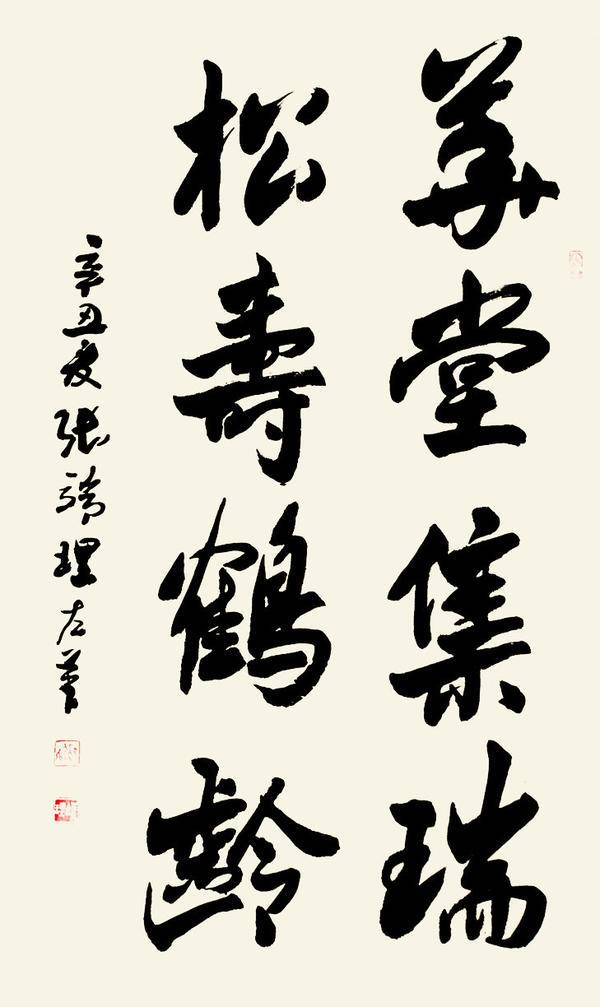 華堂集瑞
松壽鶴齡
辛丑夏張理左筆